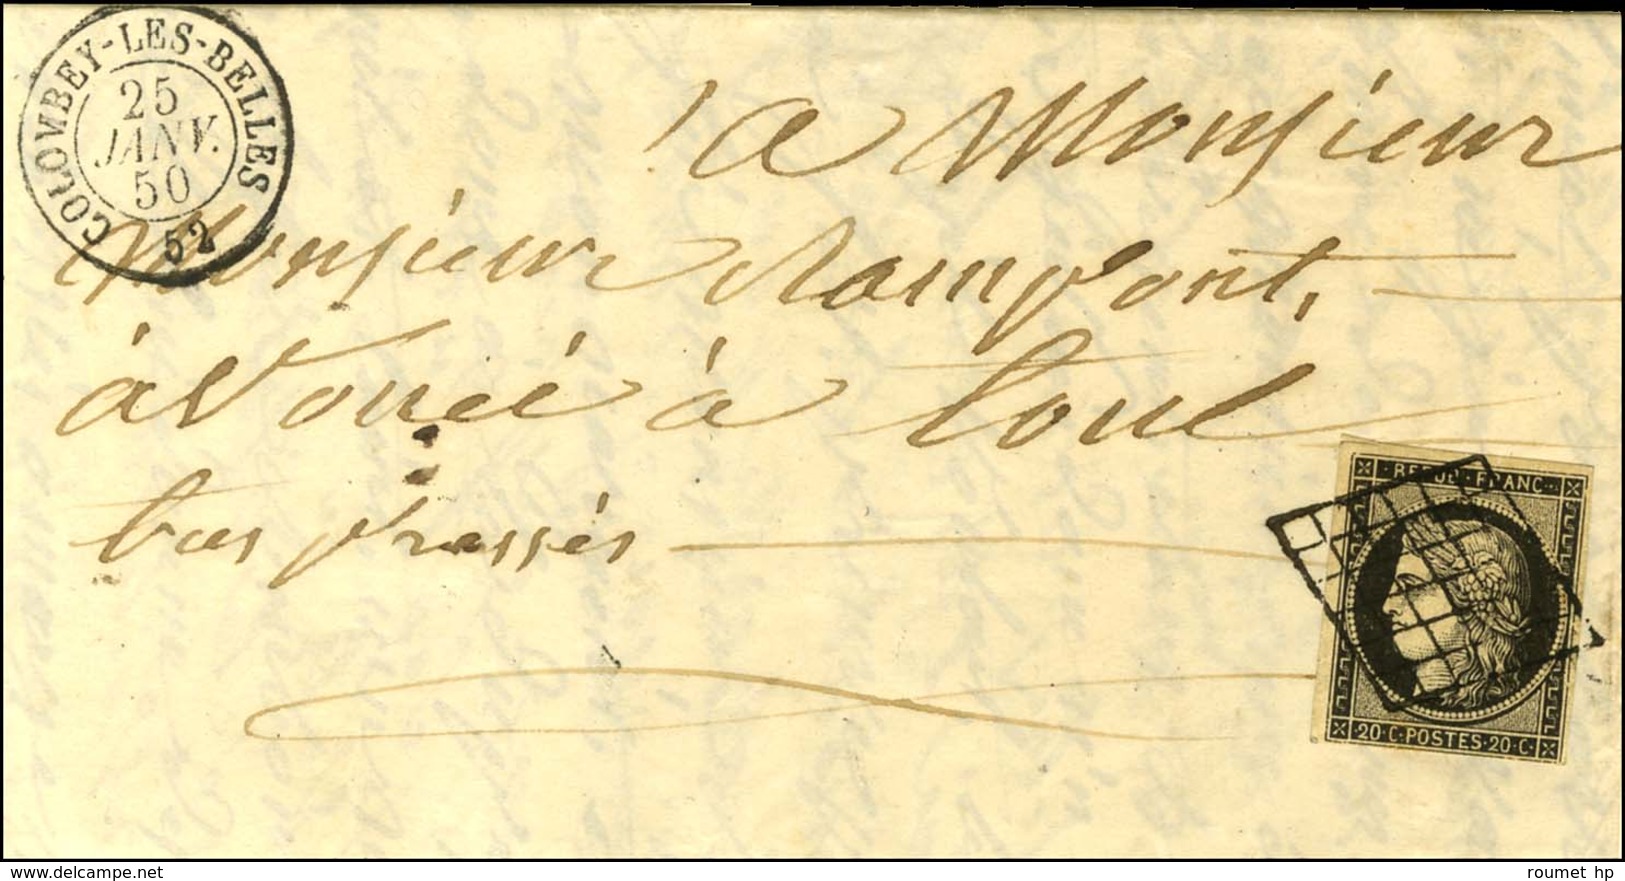 COLOMBEY-LES-BELLES
25
JANV.
50
52
a Monsieur
Monsieur Rampont,
àvoué à Toul
bas pressés
REPUB · FRANC
20·C·POSTES·20·C·
roumet hp